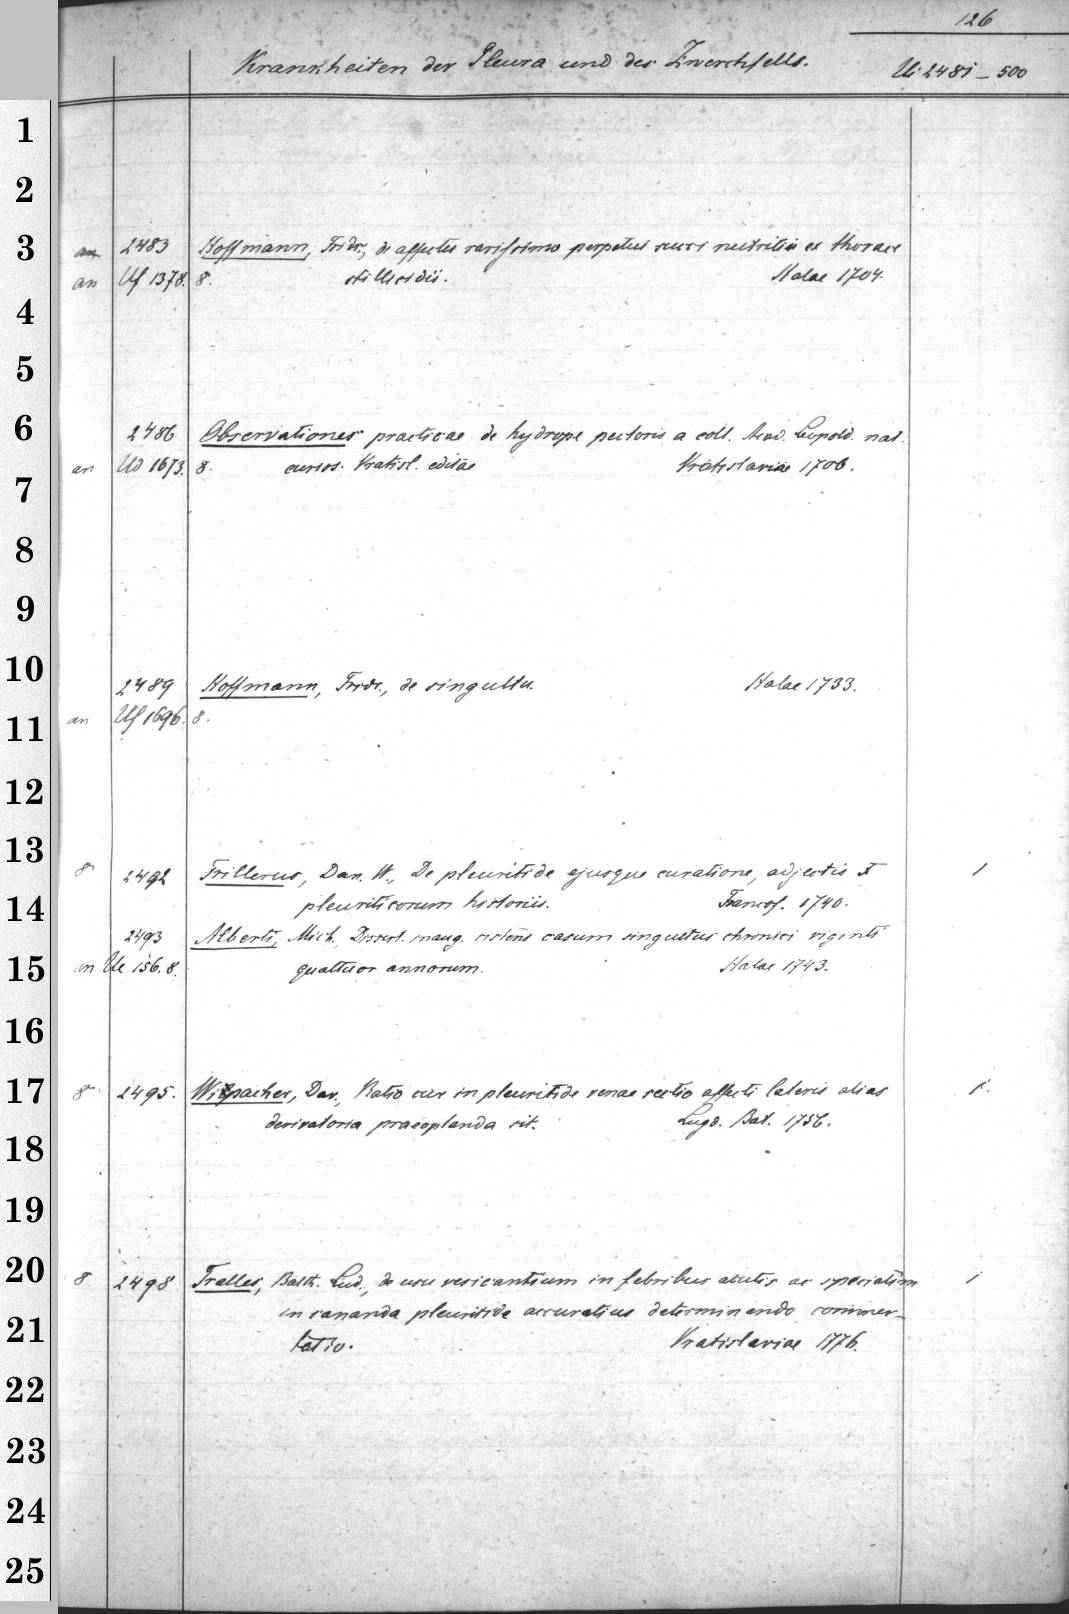 126
Krankheiten der Pleura und des Zwerchfells. Ui 2481 – 500
1
2
3 an 2483 Hoffmann, Fridr., de affectu rarissimo perpetui succi nutritii ex thorace
an Uf 1378. 8. stillicidii. Halae 1704.
4
5
6 2486 Observationes practicae de hydrope pectoris a coll. Acad. Leopold. nat.
an Ud 1673. 8. curios. Vratisl. editae Vratislaviae 1706.
7
8
9
10 2489 Hoffmann, Fridr., de singultu. Halae 1733.
11 an Uf 1696. 8.
12
13 8° 2492 Trillerus, Dan. W., De pleuritide ejusque curatione, adjectis X 1
14 pleuriticorum historiis. Francof. 1740.
2493 Alberti, Mich., Dissert. inaug. sistens casum singultus chronici viginti
15 an Ue 156. 8. quattuor annorum. Halae 1743.
16
17 8° 2495. Wipacher, Dav., Ratio cur in pleuritide venae sectio affecti lateris alias 1.
derivatoria praeoptanda sit. Lugd. Bat. 1756.
18
19
20 8 2498 Tralles, Balth. Lud., de usu vesicantium in febribus acutis ac speciatim 1
21 in sananda pleuritide accuratius determinando commen-
tatio. Vratislaviae 1776.
22
23
24
25